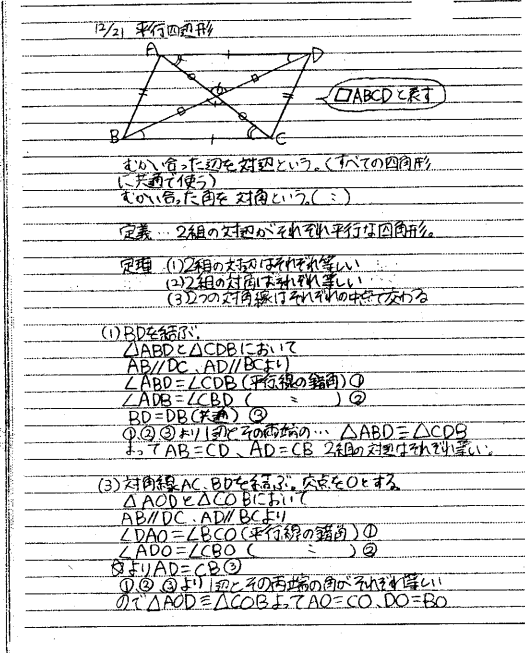 12/21 平行四辺形
A
D
□ABCDと表す
B
C
むかい合った辺を対辺という。(すべての四角形
に共通で使う)
むかい合った角を対角という。( 〃 )
定義…2組の対辺がそれぞれ平行な四角形。
定理 (1)2組の対辺はそれぞれ等しい
(2)2組の対角はそれぞれ等しい
(3)2つの対角線はそれぞれの中点で交わる
(1)BDを結ぶ。
△ABDと△CDBにおいて
AB//DC、AD//BCより
∠ABD=∠CDB(平行線の錯角)①
∠ADB=∠CBD( 〃 )②
BD=DB(共通)③
①,②,③より1辺とその両端の… △ABD≡△CDB
よってAB=CD、AD=CB 2組の対辺はそれぞれ等しい。
(3)対角線AC、BDを結ぶ。交点をOとする
△AODと△COBにおいて
AB//DC、AD//BCより
∠DAO=∠BCO(平行線の錯角)①
∠ADO=∠CBO( 〃 )②
よりAD=CB③
①,②,③より1辺とその両端の角がそれぞれ等しい
ので△AOD≡△COBよってAO=CO、DO=BO